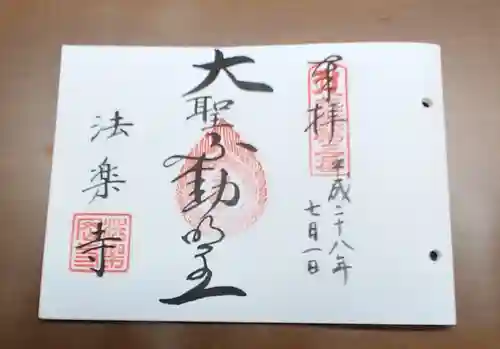 奉拝
平成二十八年
七月一日
大聖不動明王
法楽寺